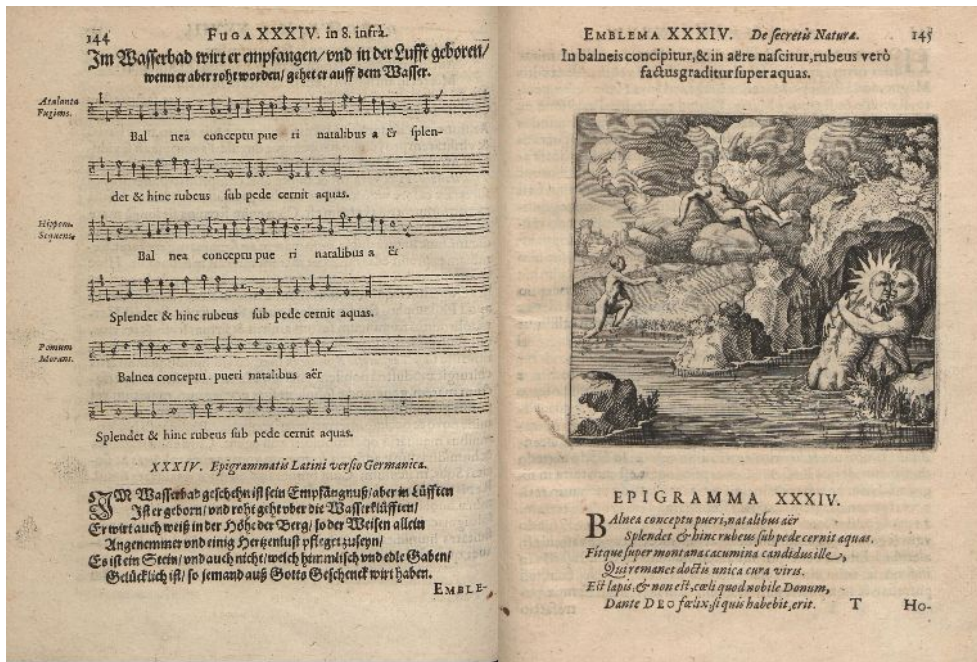 144
FUGA XXXIV. in 8. infrà.
Im Wasserbad wirt er empfangen/ vnd in der Lufft geboren/
wenn er aber roht worden/ gehet er auff dem Wasser.
Atalanta
Fugiens.
Bal nea conceptu pue ri natalibus a ër splen-
det & hinc rubeus sub pede cernit aquas.
Hippom.
Sequens.
Bal nea conceptu pue ri natalibus a ër
Splendet & hinc rubeus sub pede cernit aquas.
Pomum
Morans.
Balnea conceptu pueri natalibus aër
Splendet & hinc rubeus sub pede cernit aquas.
XXXIV. Epigrammatis Latini versio Germanica.
IM Wasserbad geschehn ist sein Empfängnuß/ aber in Lüfften
Ist er geborn/ vnd roht geht vber die Wasserklüfften/
Er wirt auch weiß in der Höhe der Berg/ so der Weisen allein
Angenemmer vnd einig Hertzenlust pfleget zuseyn/
Es ist ein Stein/ vnd auch nicht/ welch himmlisch vnd edle Gaben/
Gelücklich ist/ so jemand auß Gotts Geschenck wirt haben.
EMBLE-
EMBLEMA XXXIV. De secretis Naturæ. 145
In balneis concipitur, & in aëre nascitur, rubeus verò
factus graditur super aquas.
EPIGRAMMA XXXIV.
BAlnea conceptu pueri, natalibus aër
Splendet & hinc rubeus sub pede cernit aquas.
Fitque super montana cacumina candidus ille,
Qui remanet doctis unica cura viris.
Est lapis, & non est, cœli quod nobile Donum,
Dante DEO fœlix, si quis habebit, erit.
T Ho-